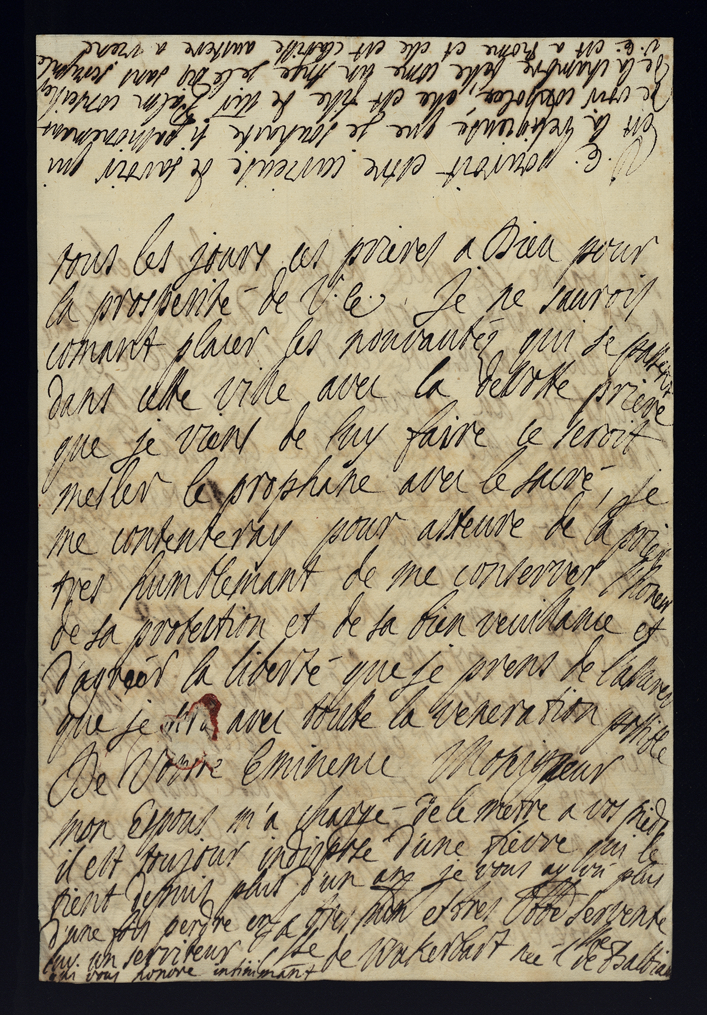 tous les jours ces prieres a Dieu pour
la prosperité de V. E. Je ne saurois
comant placer les nouvautés qui se passent
dans cette ville avec la devotte priere
que je viens de luy faire ce seroit
mesler le prophane avec le sacré, je
me contenteray pour asseure de la prier
tres humblemant de me conserver l'honeur
de sa protection et de sa bien veuillance et
d'agreér la liberté que je prens de l'asurer
que je suis avec toutte la veneration possible
De Vottre Eminence Monsigneur
mon Epous m'a chargé de le metre a vos pieds
il est toujour indisposé d'une fievre qui le
tient depuis plus d'un an je vous ay vû plus
d'une fois perdre en
un serviteur
qui vous honore infinimant
La tres hum et tres Obbe Servente
de Wakerbart née de Balbian
V. E. pouroit estre curieuse de savoir qui
est la Reverende que je souhaite si passionemant
de voir consolée, elle est fille de
de la chambre belle come un Ange je le dis sans
V. E. est a Rome et elle est a